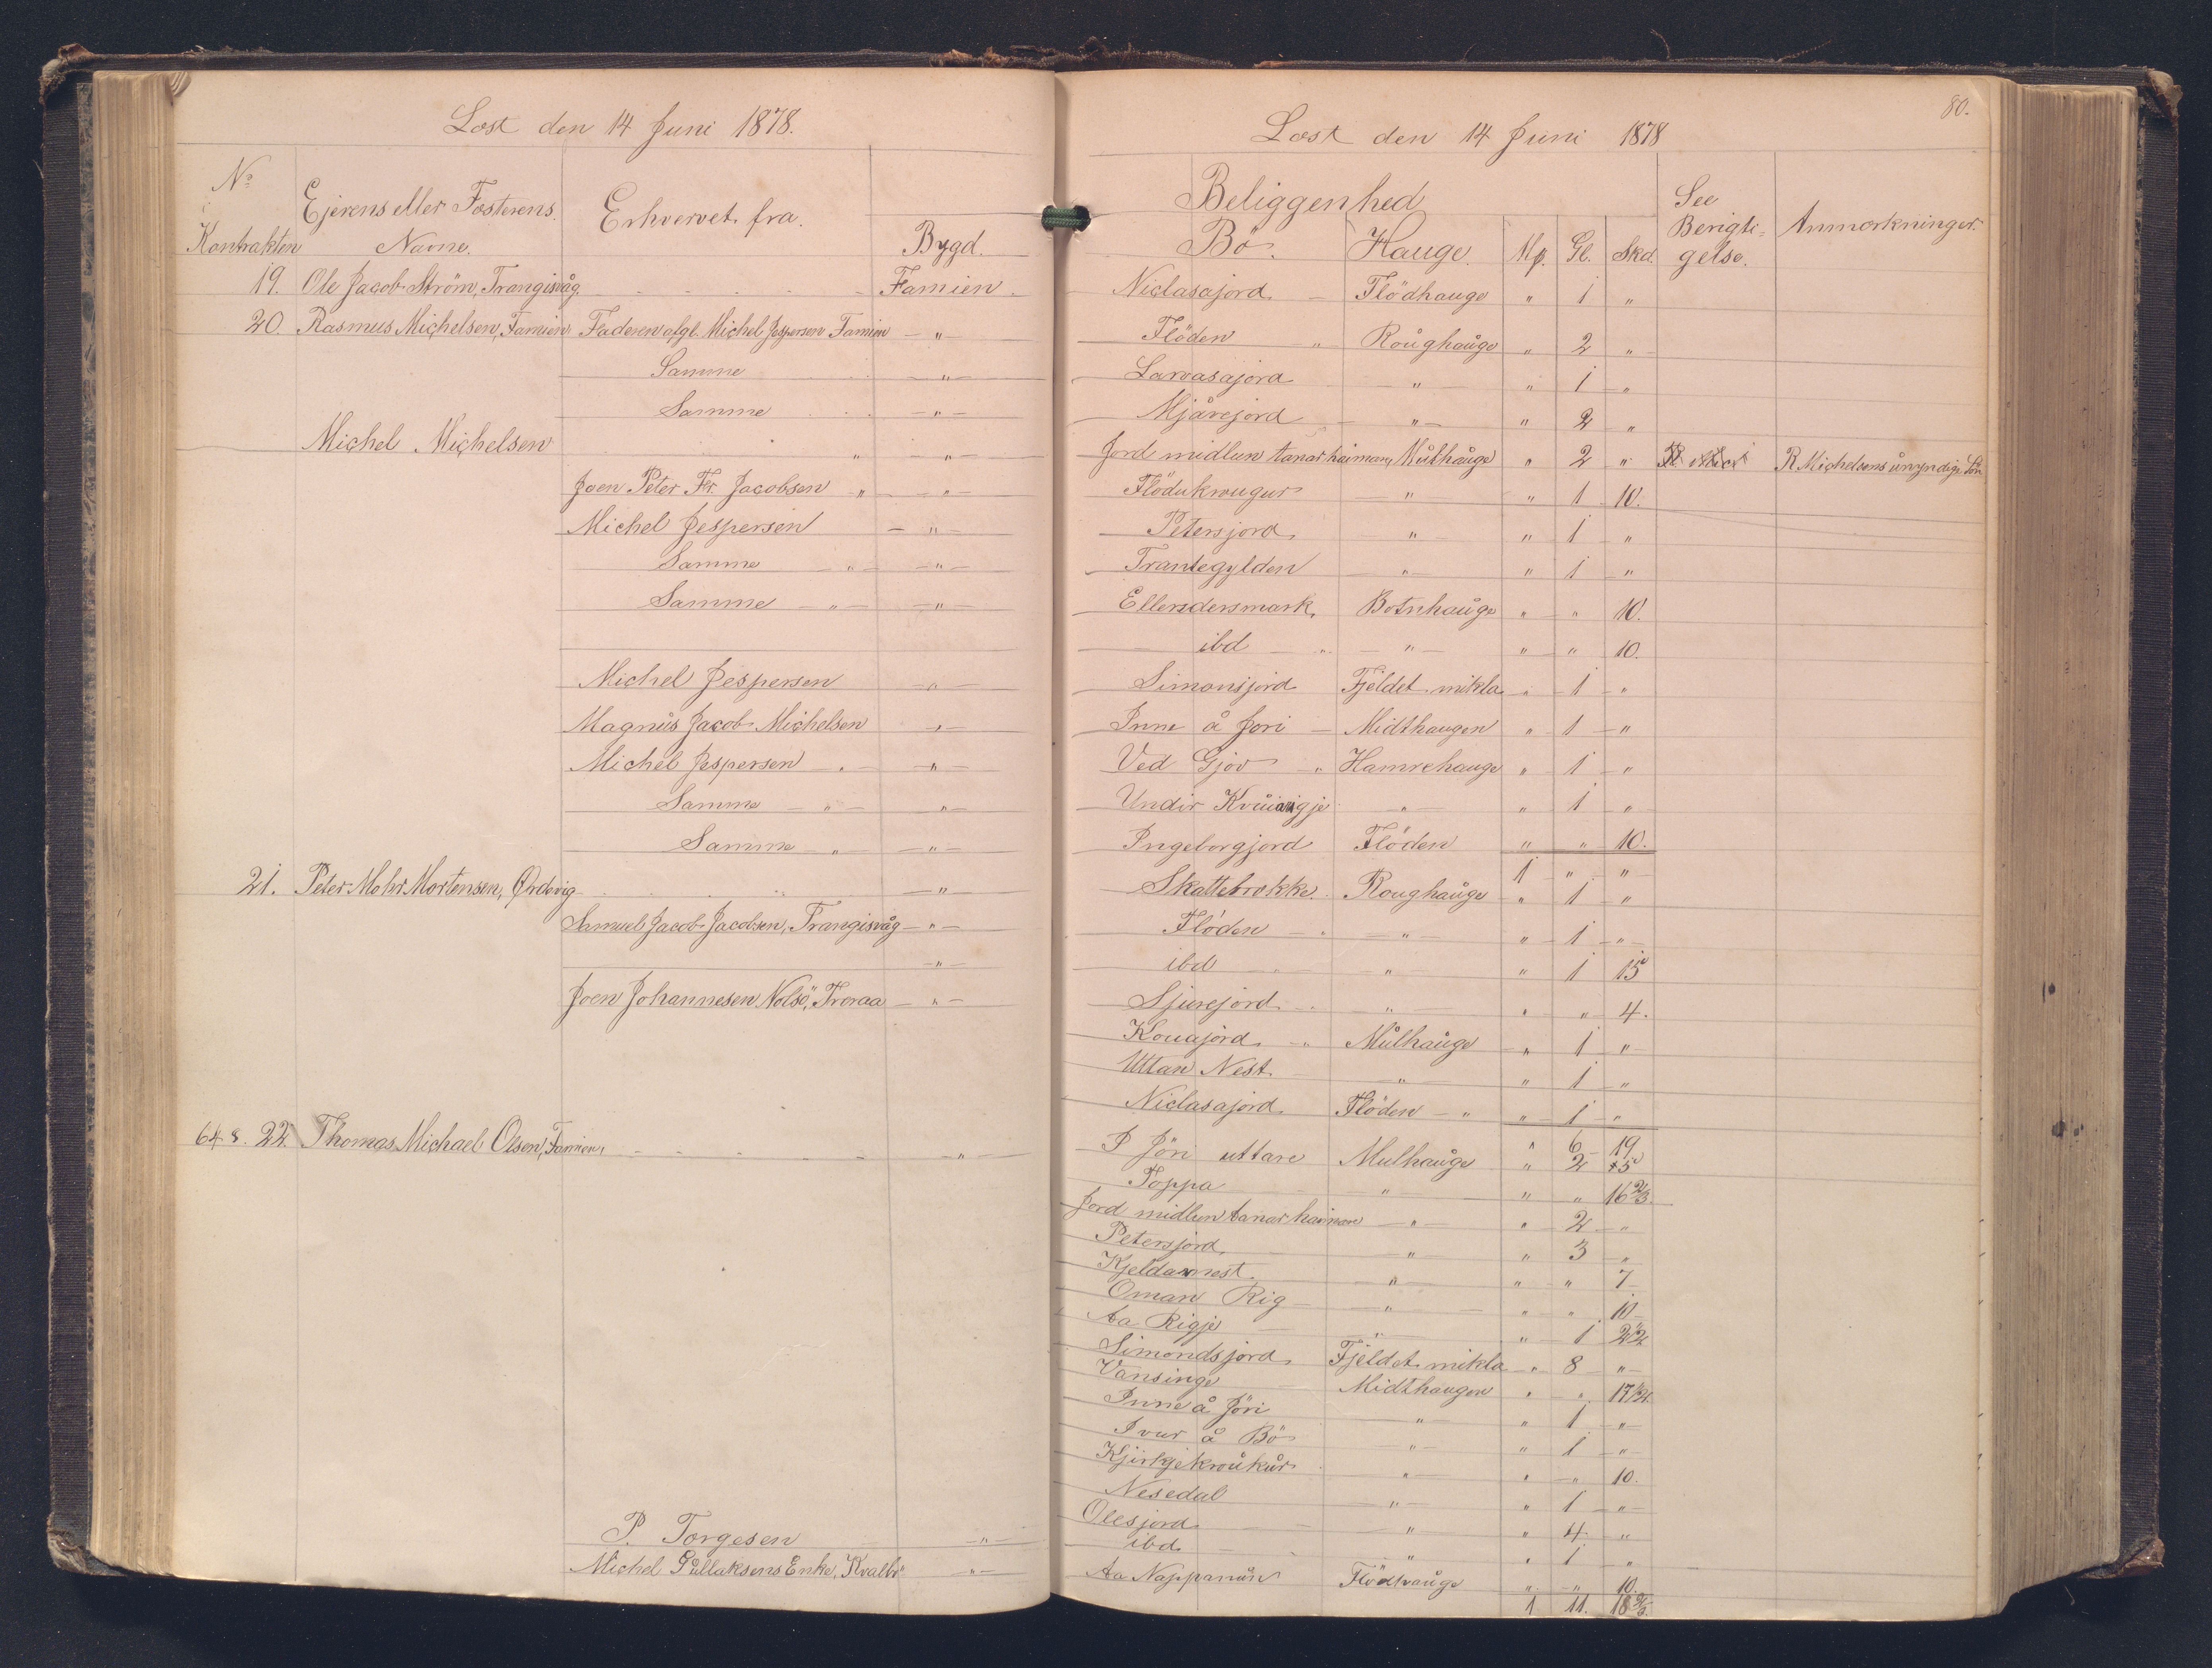 Læst den 14 Juni 1878.
No Kontrakten
Ejerens eller Fæsterens Navne.
Erhvervet fra.
Bygd.
19. Ole Jacob Ström, Trangisvåg. Famien
20. Rasmus Michelsen, Famien Faderen afgl. Michel Jespersen Famien "
Samme "
Samme "
Michel Michelsen " "
Joen Peter Fr. Jacobsen " "
Michel Jespersen "
Samme " "
Samme " "
Michel Jespersen "
Magnus Jacob Michelsen "
Michel Jespersen " "
Samme " "
Samme " "
21. Peter Mohr Mortensen, Ørdevig "
Samuel Jacob Jacobsen, Trangisvåg "
"
Joen Johannesen Nolsö, Froraa "
64 8. 22 Thomas Michael Olsen, Famien, "
P. Torgesen "
Michel Pållaksens Enke, Kvalbö "
80.
Læst den 14 Juni 1878
Beliggenhed
Bö. Hauge. Mp. Gl. Skd.
See Berigtigelse.
Anmærkninger.
Niclasajord Flödhauge " 1 "
Flöden " Roughauge " 2 "
Larvasajord " " 1 "
Mjåvejord " " 2 "
Jord midlun tanar haiman, Mulhauge " 2 " R Michelsens umyndige Sön
Flödukrougur " " 1 10.
Petersjord " " 1 "
Trantegylden " " 1 "
Ellendersmark, Botnhauge " " 10.
ibd " " " " 10.
Simonsjord Fjeldet mikla " 1 "
Inne å Jori Midthaugen " 1 "
Ved Gjov " Hamrehauge " 1 "
Undir " " 1 "
Ingeborgjord Flöden " " 10.
1 " "
Skattebrekke. Roughauge " 1 "
Flöden " " " 1 "
ibd " " 1 15
Sjurejord " " " 4.
Kouajord " Mulhauge " 1 "
Uttan Nest " " 1 "
Niclasajord Flöden " " 1 "
" 6 19
I Jöri uttare Mulhauge " 2 15
Toppa " " " 16 2/3.
Jord midlun tanar haiman " " 2 "
Petersjord, " " 3 "
Kjeldarnest. " " " 7
Oman Rig " " " 10
Aa Rigje " " 1 2 1/2
Simondsjord Fjeldet mikla " 8 "
Vansinge Midthaugen " " 17 1/2
Inne å Jöri " " 1 "
Ivur å Bö " " 1 "
Kjirkjekroukur " " " 10.
Nesedal " " 1 "
Olesjord " " 4 "
ibd. " " 1 "
Aa Nappanum Flödhauge " " 10.
1 11. 18 2/3.